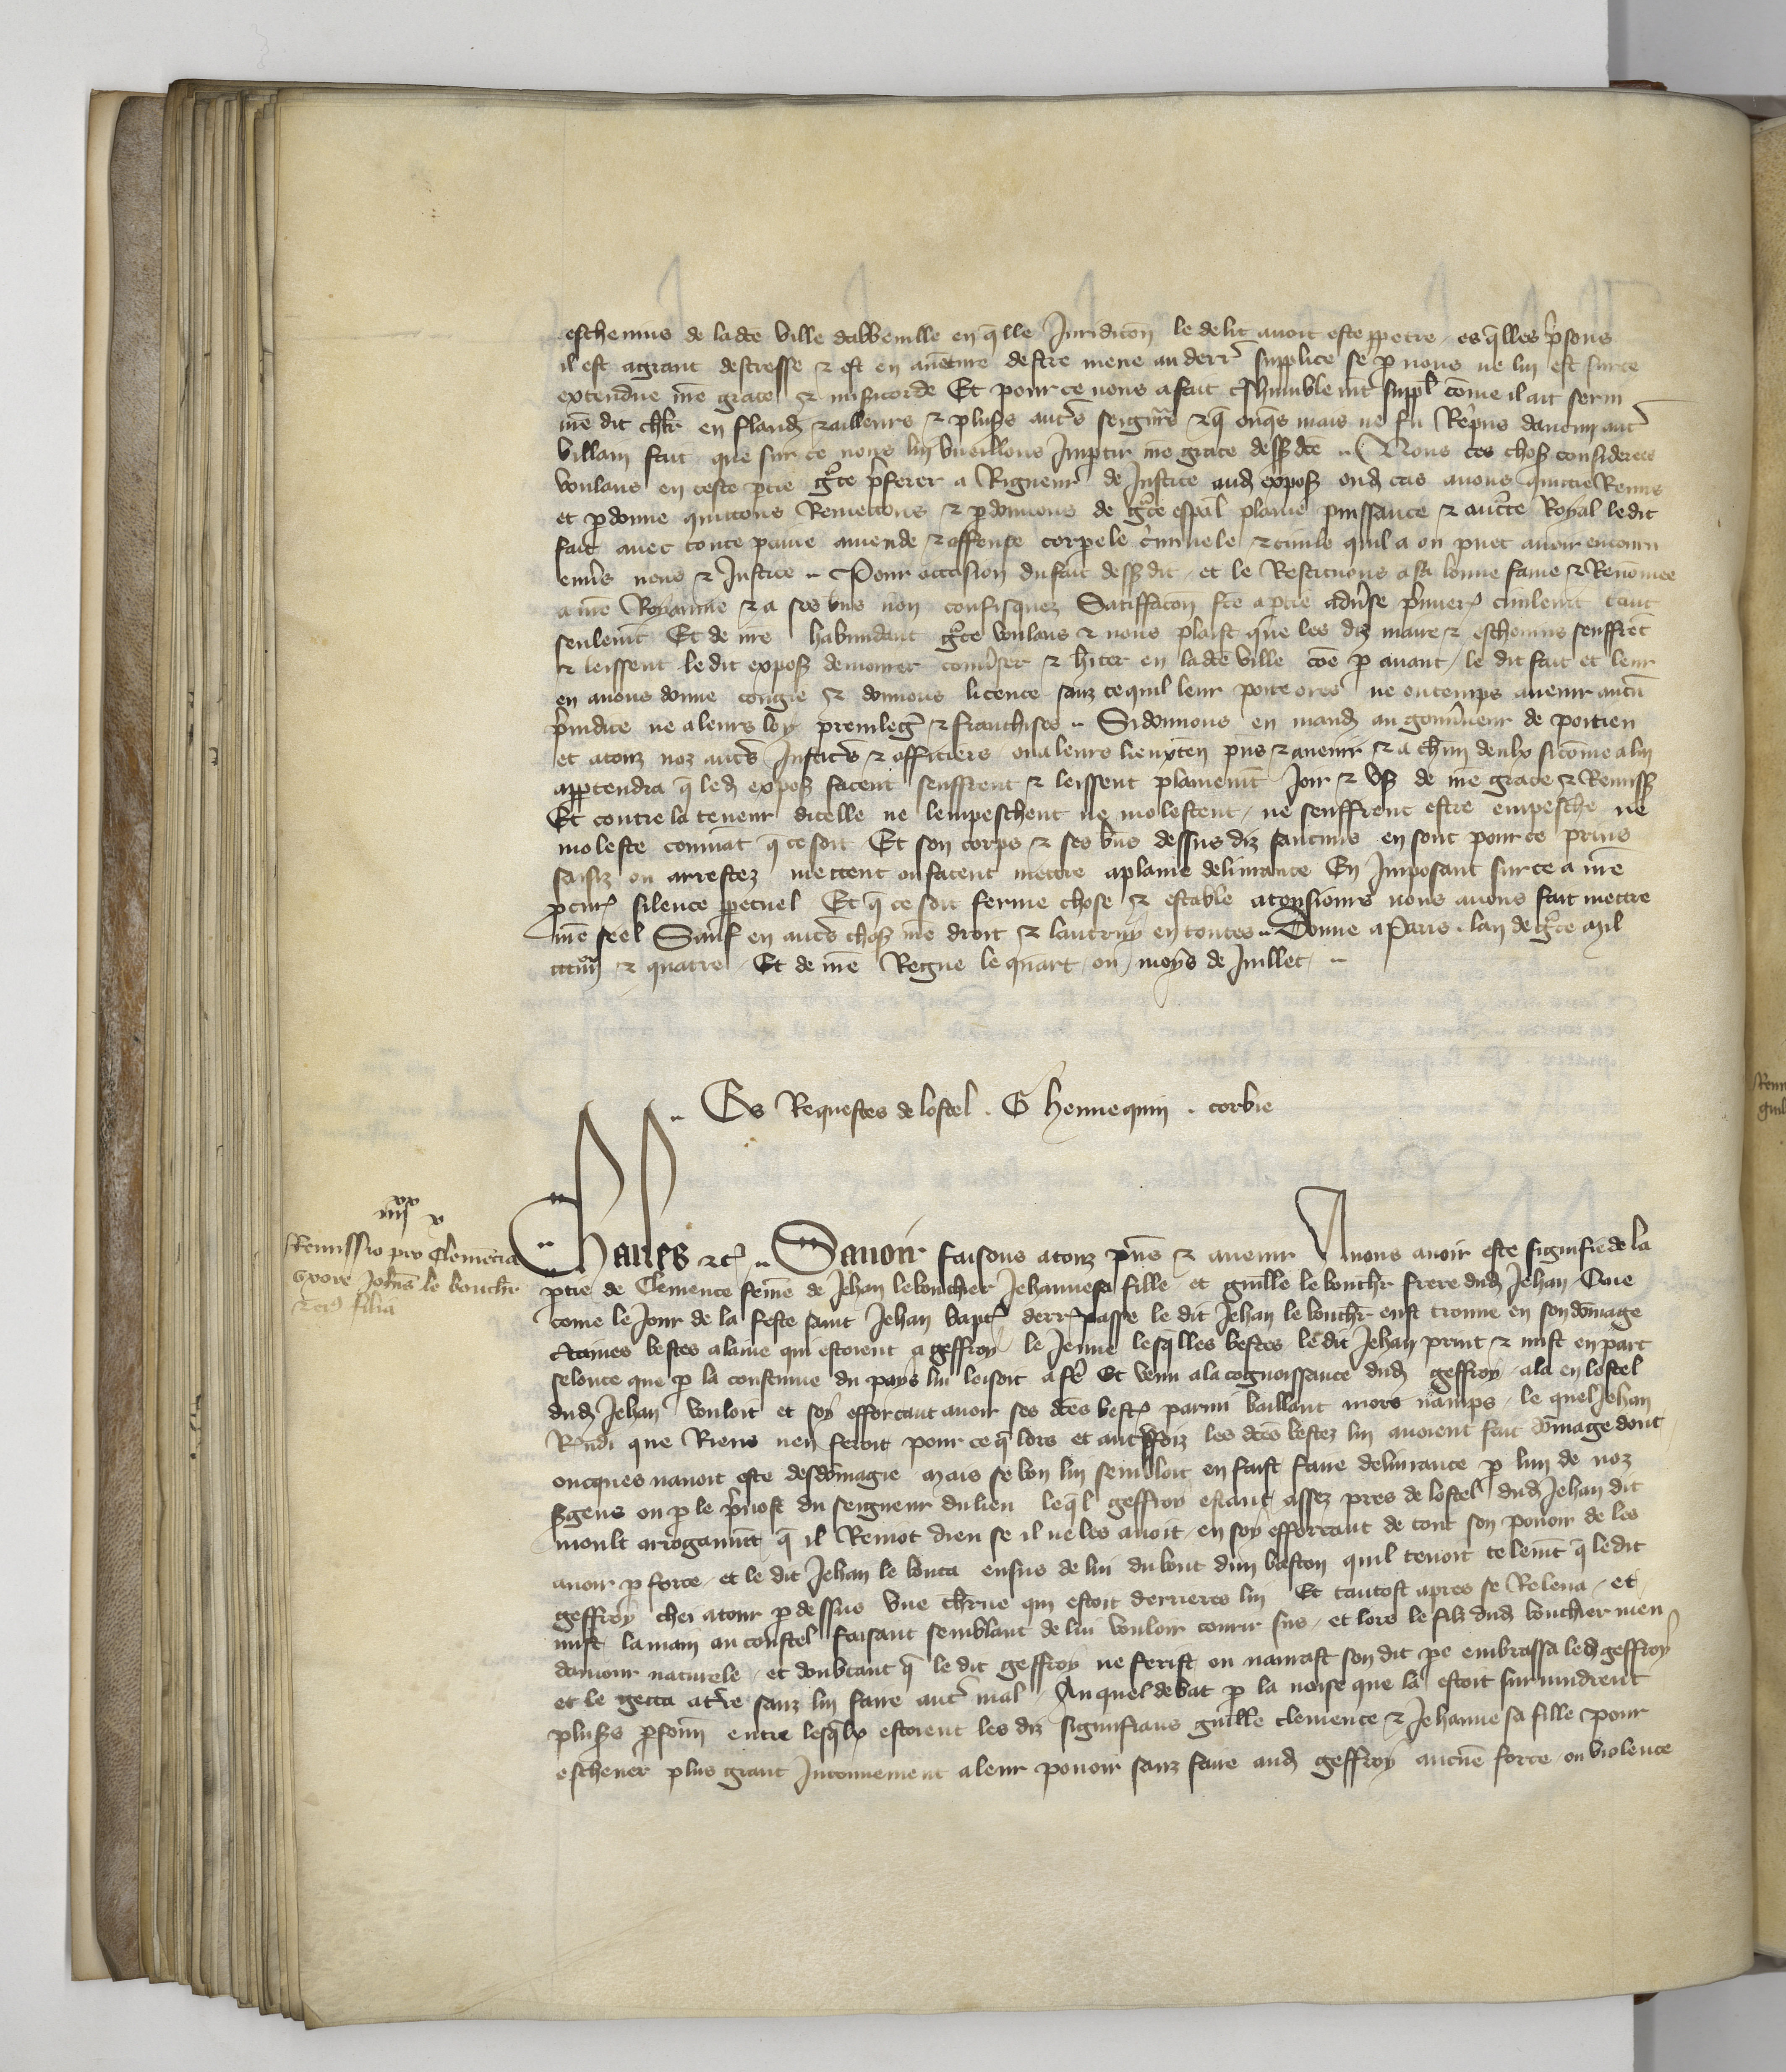 eschevins de ladcē ville dabbeville en q̄lle Juridicōn le delit avoit este ꝑpetre es q̄lles p̃sons
il est a grant destresse ⁊ est en aventure destre mene au derr̃ supplice se ꝑ nous ne lui est sur ce
extendue nr̄e grace ⁊ misicorde Et pour ce nous a fait humblemt̄ suppl̄ cōme il ait servi
nr̄e dit chl̄r en fland̄ ⁊ ailleurs ⁊ plus̃s aut̃s seign̄rs ⁊ q̄ onq̄s mais ne fu Rep̃ns daucun aut̃
villain fait que sur ce nous lui vueillons Impartir nr̄e grace dess̃dcē .. Nous ces chos̃ considerees
voulans en ceste ꝑtie gr̃ce p̃ferer a Rigueur de Justice aud̄ expos̃ oud̄ cas avons quictie Remis
et ꝑdonne quictons Remectons ⁊ ꝑdonnons de gr̃ce esp̄al plaine puissance ⁊ auct̃te Royal ledit
fait avec toute paine amende ⁊ offense corporele c̃minele ⁊ civile quil a ou puet avoir encouru
enṽs nous ⁊ Justice .. Pour occasion du fait dess̃ dit et le Restituons a sa bonne fame ⁊ Renōmee
a nr̄e Royaume ⁊ a ses bn̄s non confisquez Satiffacōn fcē a ꝑtie adṽse p̃mier̃ civilemt̄ tant
seulemt̄ Et de nr̄e habundant gr̃ce voulans ⁊ nous plaist que les diz maire ⁊ eschevins seuffrēt
⁊ leissent le dit expos̃ demourer conṽser ⁊ h̄iter en ladcē ville cōe ꝑ avant le dit fait et leur
en avons donne congie ⁊ donnons licence sanz ce quil leur porte ores ne ou temps avenir aucū
p̃judice ne a leurs loy previleg̃ ⁊ franchises .. Si donnons en mand̄ au gouv̄neur de poitieu
et a touz noz aut̃s Justic̃s ⁊ officiers ou a leurs lieuxten̄ pn̄s ⁊ avenir ⁊ a ch̄un deulx si cōme a lui
appartendra q̄ led̄ expos̃ facent seuffrent ⁊ leissent plainemt̄ Joir ⁊ us̃ de nr̄e grace ⁊ Remiss̃
Et contre la teneur dicelle ne lempeschent ne molestent ne seuffrent estre empesche ne
moleste commāt q̄ ce soit Et son corps ⁊ ses bn̄s dessus diz saucuns en sont pour ce prins
saisiz ou arrestez mectent ou facent mectre a plaine delivrance En Imposant sur ce a nr̄e
ꝓcur̃ silence ꝑpetuel Et q̄ ce soit ferme chose ⁊ estable a tousiours nous avons fait mectre
nr̄e seel Sauf en aut̃s chos̃ nr̄e droit ⁊ lautruy en toutes .. Donne a Paris lan de gr̃ce mil
ccc iiij ⁊ quatre Et de nr̄e Regne le quart ou moys de Juillet ..
.. Es Requestes de lostel . G hennequin . corbie
iiij xx v
Remissio pro Clemēcia
uxore Johīs le bouch̄r
⁊ eiꝰ filia
Charles ⁊c̃ .. Savoir faisons a touz pn̄s ⁊ avenir A nous avoir este signifie de la
ꝑtie de Clemence fēme de Jehan le bouchier Jehanne sa fille et guille le bouch̄r frere dud̄ Jehan Que
cōme le Jour de la feste saint Jehan bapt̃ derr̃ passe le dit Jehan le bouch̄r eust trouve en son dōmage
c̃taines bestes a laine qui estoient a geffroy le Jeune lesq̄lles bestes le dit Jehan print ⁊ mist en parc
selonc ce que ꝑ la coustume du pays lui loisoit a fē Et venu a la cognoissance dud̄ geffroy ala en lostel
dud̄ Jehan vouloit et soy efforcant avoir ses dc̄es best̃ parmi baillant mors namps le quel Jehan
Rn̄di que Riens nen feroit pour ce q̄ lors et autreffoiz les dc̄es bestez lui avoient fait dōmage dont
oncques navoit este desdōmagie Mais se bon lui sembloit en faist faire delivrance ꝑ lun de noz
s̃gens ou ꝑ le p̃vost du seigneur du lieu leq̄l geffroy estant assez pres de lostel dud̄ Jehan dit
moult arrogammt̄ q̄ il Renioit dieu se il ne les avoit en soy efforcant de tout son povoir de les
avoir ꝑ force et le dit Jehan le bouta ensus de lui du bout dun baston quil tenoit telemt̄ q̄ ledit
geffroy chei a tour ꝑ dessus une ch̄rue qui estoit derrieres lui Et tantost apres se Releva et
mist la main au coustel faisant semblant de lui vouloir courir sus et lors le filz dud̄ bouchier meu
damour naturele et doubtant q̄ le dit geffroy ne ferist ou navrast son dit pe embrassa led̄ geffroy
et le getta a t̃re sanz lui faire aut̃ mal Au quel debat ꝑ la noise que la estoit survindrent
plus̃s ꝑson̄ entre lesq̄lx estoient les diz signifians guille clemence ⁊ Jehanne sa fille pour
eschever plus grant Inconvenient a leur povoir sanz faire aud̄ geffroy aucune force ou violence